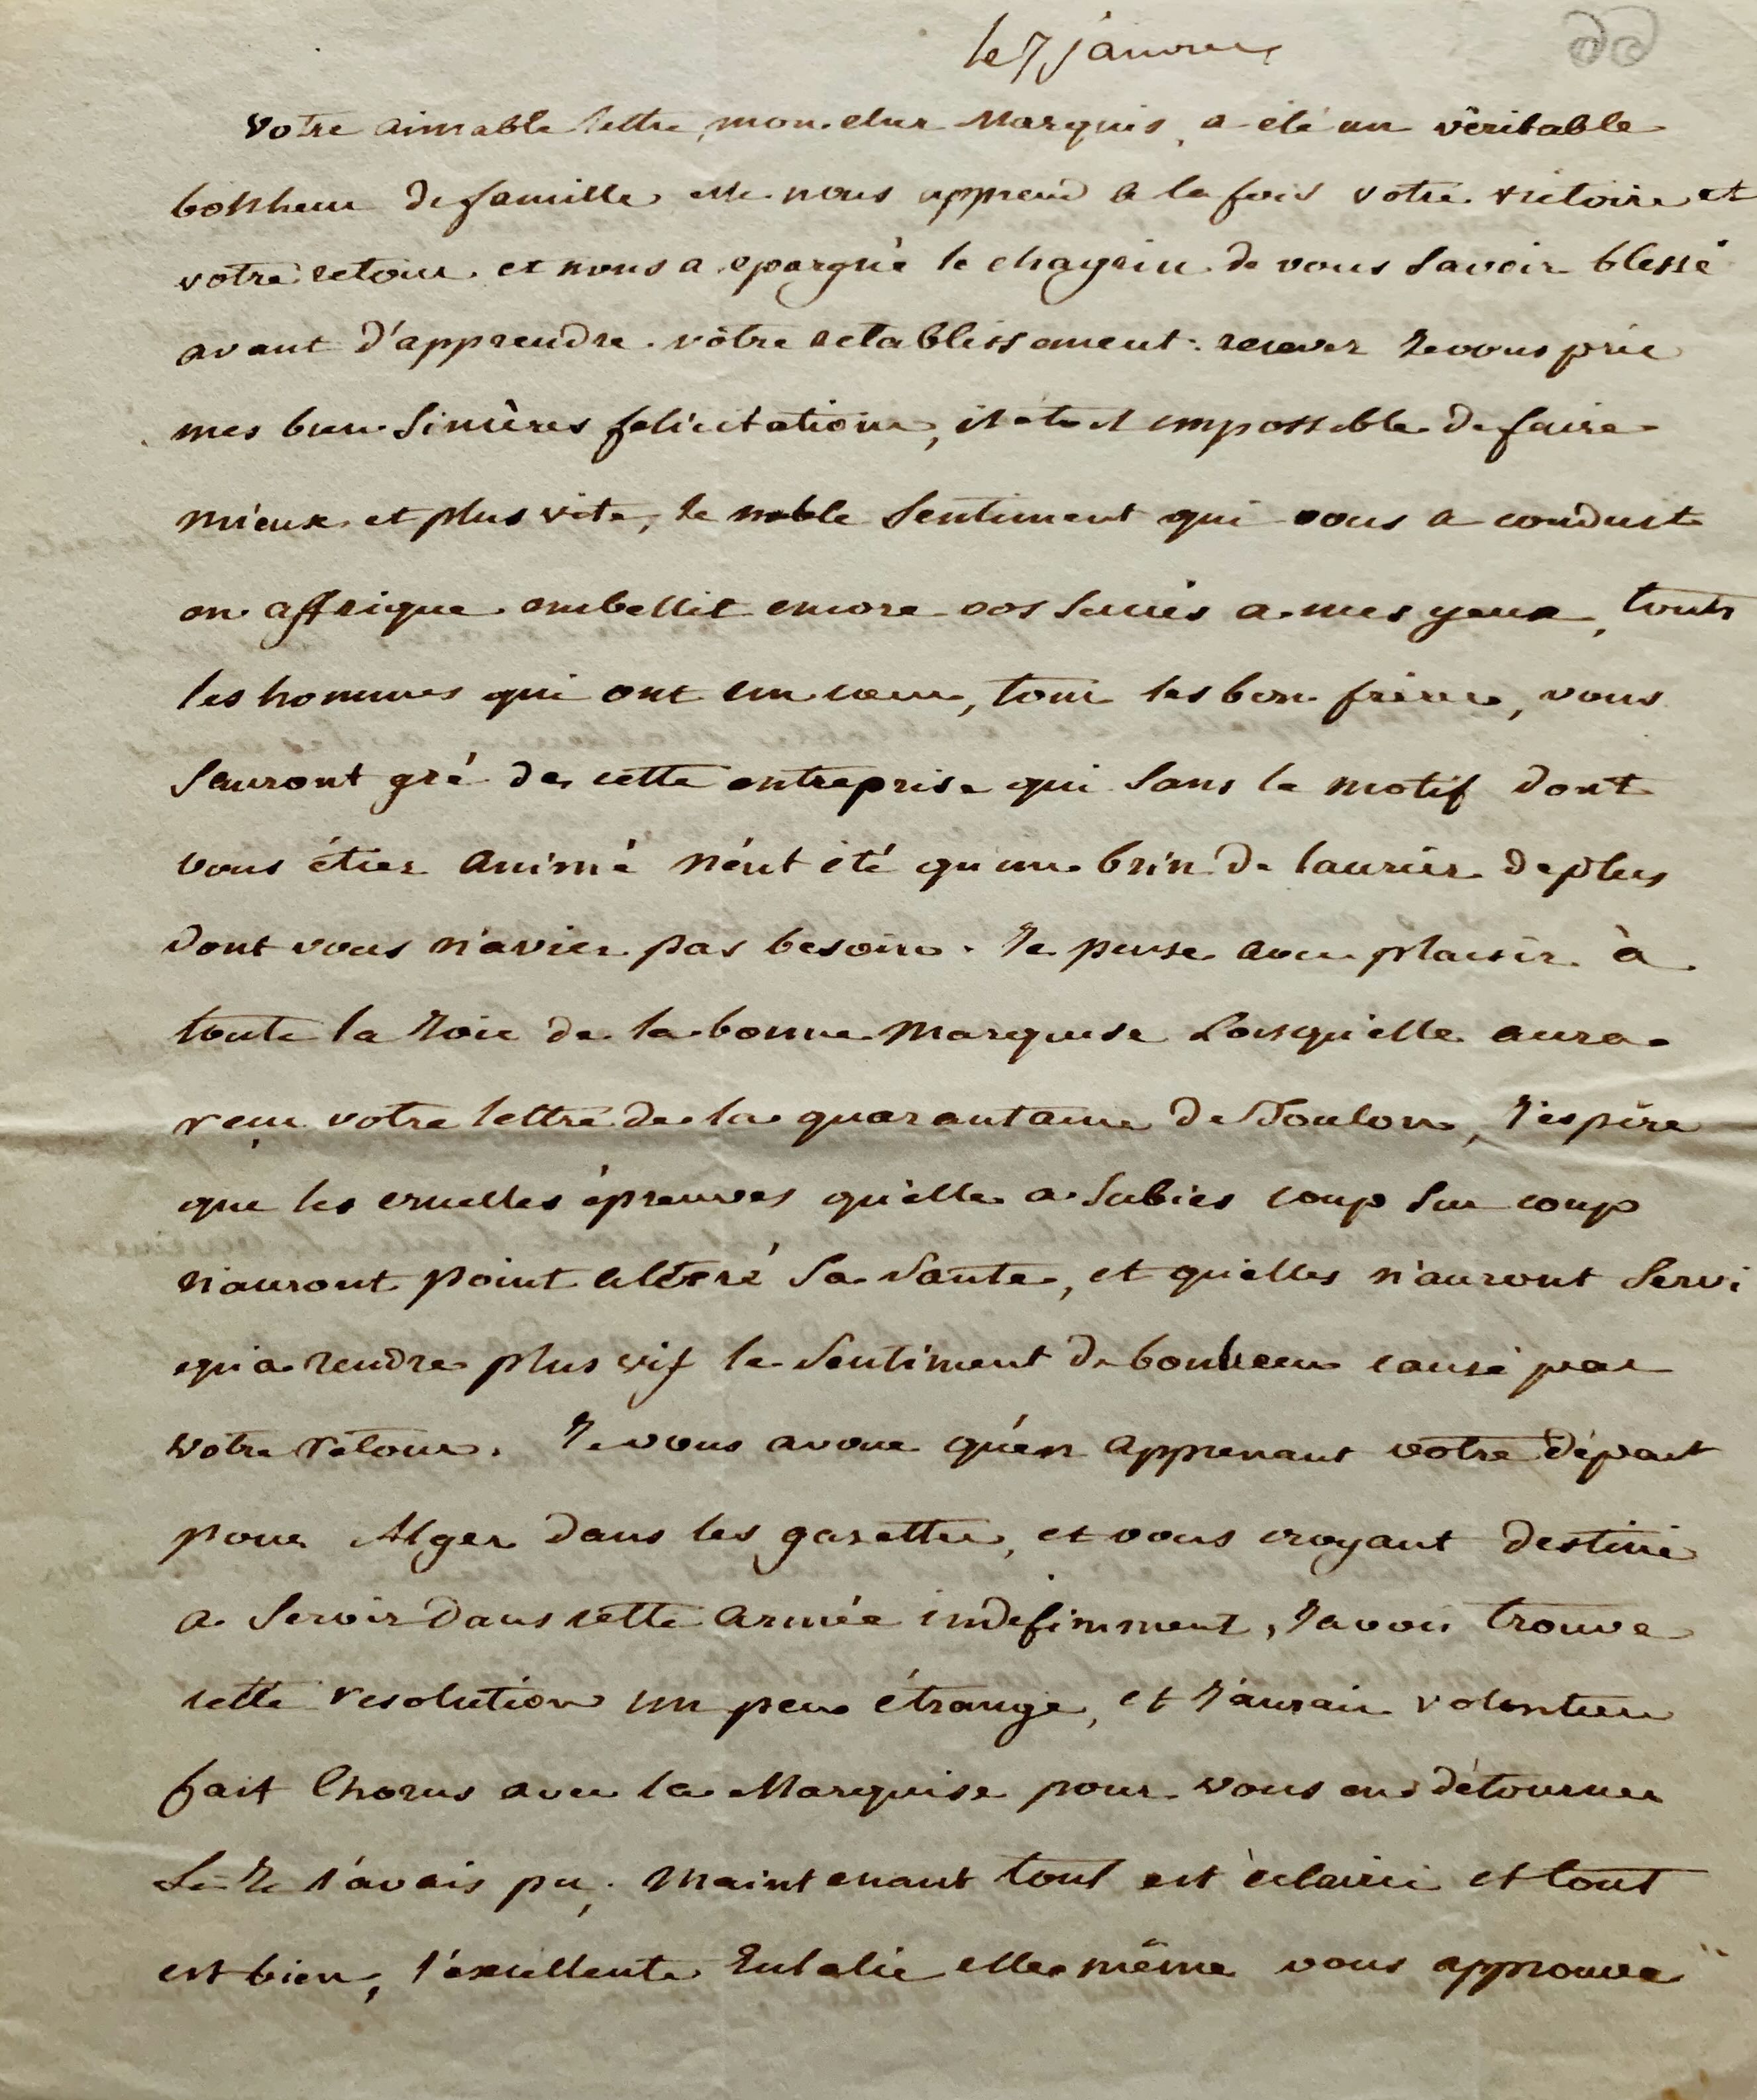 le 7 janvier
Votre aimable lettre, mon cher Marquis, a été un véritable
bonheur de famille elle nous apprend a la fois votre victoire et
votre retour et nous a epargné le chagrin de vous savoir blessé
avant d'apprendre votre retablissement : recevez Je vous prie
mes bien sincères felicitations, il étoit impossible de faire
mieux et plus vite, le noble sentiment qui vous a conduit
en affrique embellit encore vos succès a mes yeux, touts
les hommes qui ont un cœur, tous les bons frères, vous
sauront gré de cette entreprise qui sans le motif dont
vous étiez animé n'éut été qu'un brin de laurier de plus
dont vous n'aviez pas besoin. Je pense avec plaisir à
toute la Joie de la bonne Marquise Lorsqu'elle aura
reçu votre lettre de la quarantaine de Toulon, J'espère
que les cruelles épreuves qu'elle a subies coup sur coup
n'auront point altéré sa santé, et qu'elles n'auront servi
qu'a rendre plus vif le sentiment de bonheur causé par
votre retour. Je vous avoue qu'en apprenant votre départ
pour Alger dans les gazettes, et vous croyant destiné
a servir dans cette armée indefiniment, J'avois trouvé
cette resolution un peu étrange, et J'aurais volontiers
fait Chorus avec la Marquise pour vous en détourner
si Je l'avais pu, Maintenant tout est éclairci et tout
est bien, l'excellente Eulalie elle même vous approuve